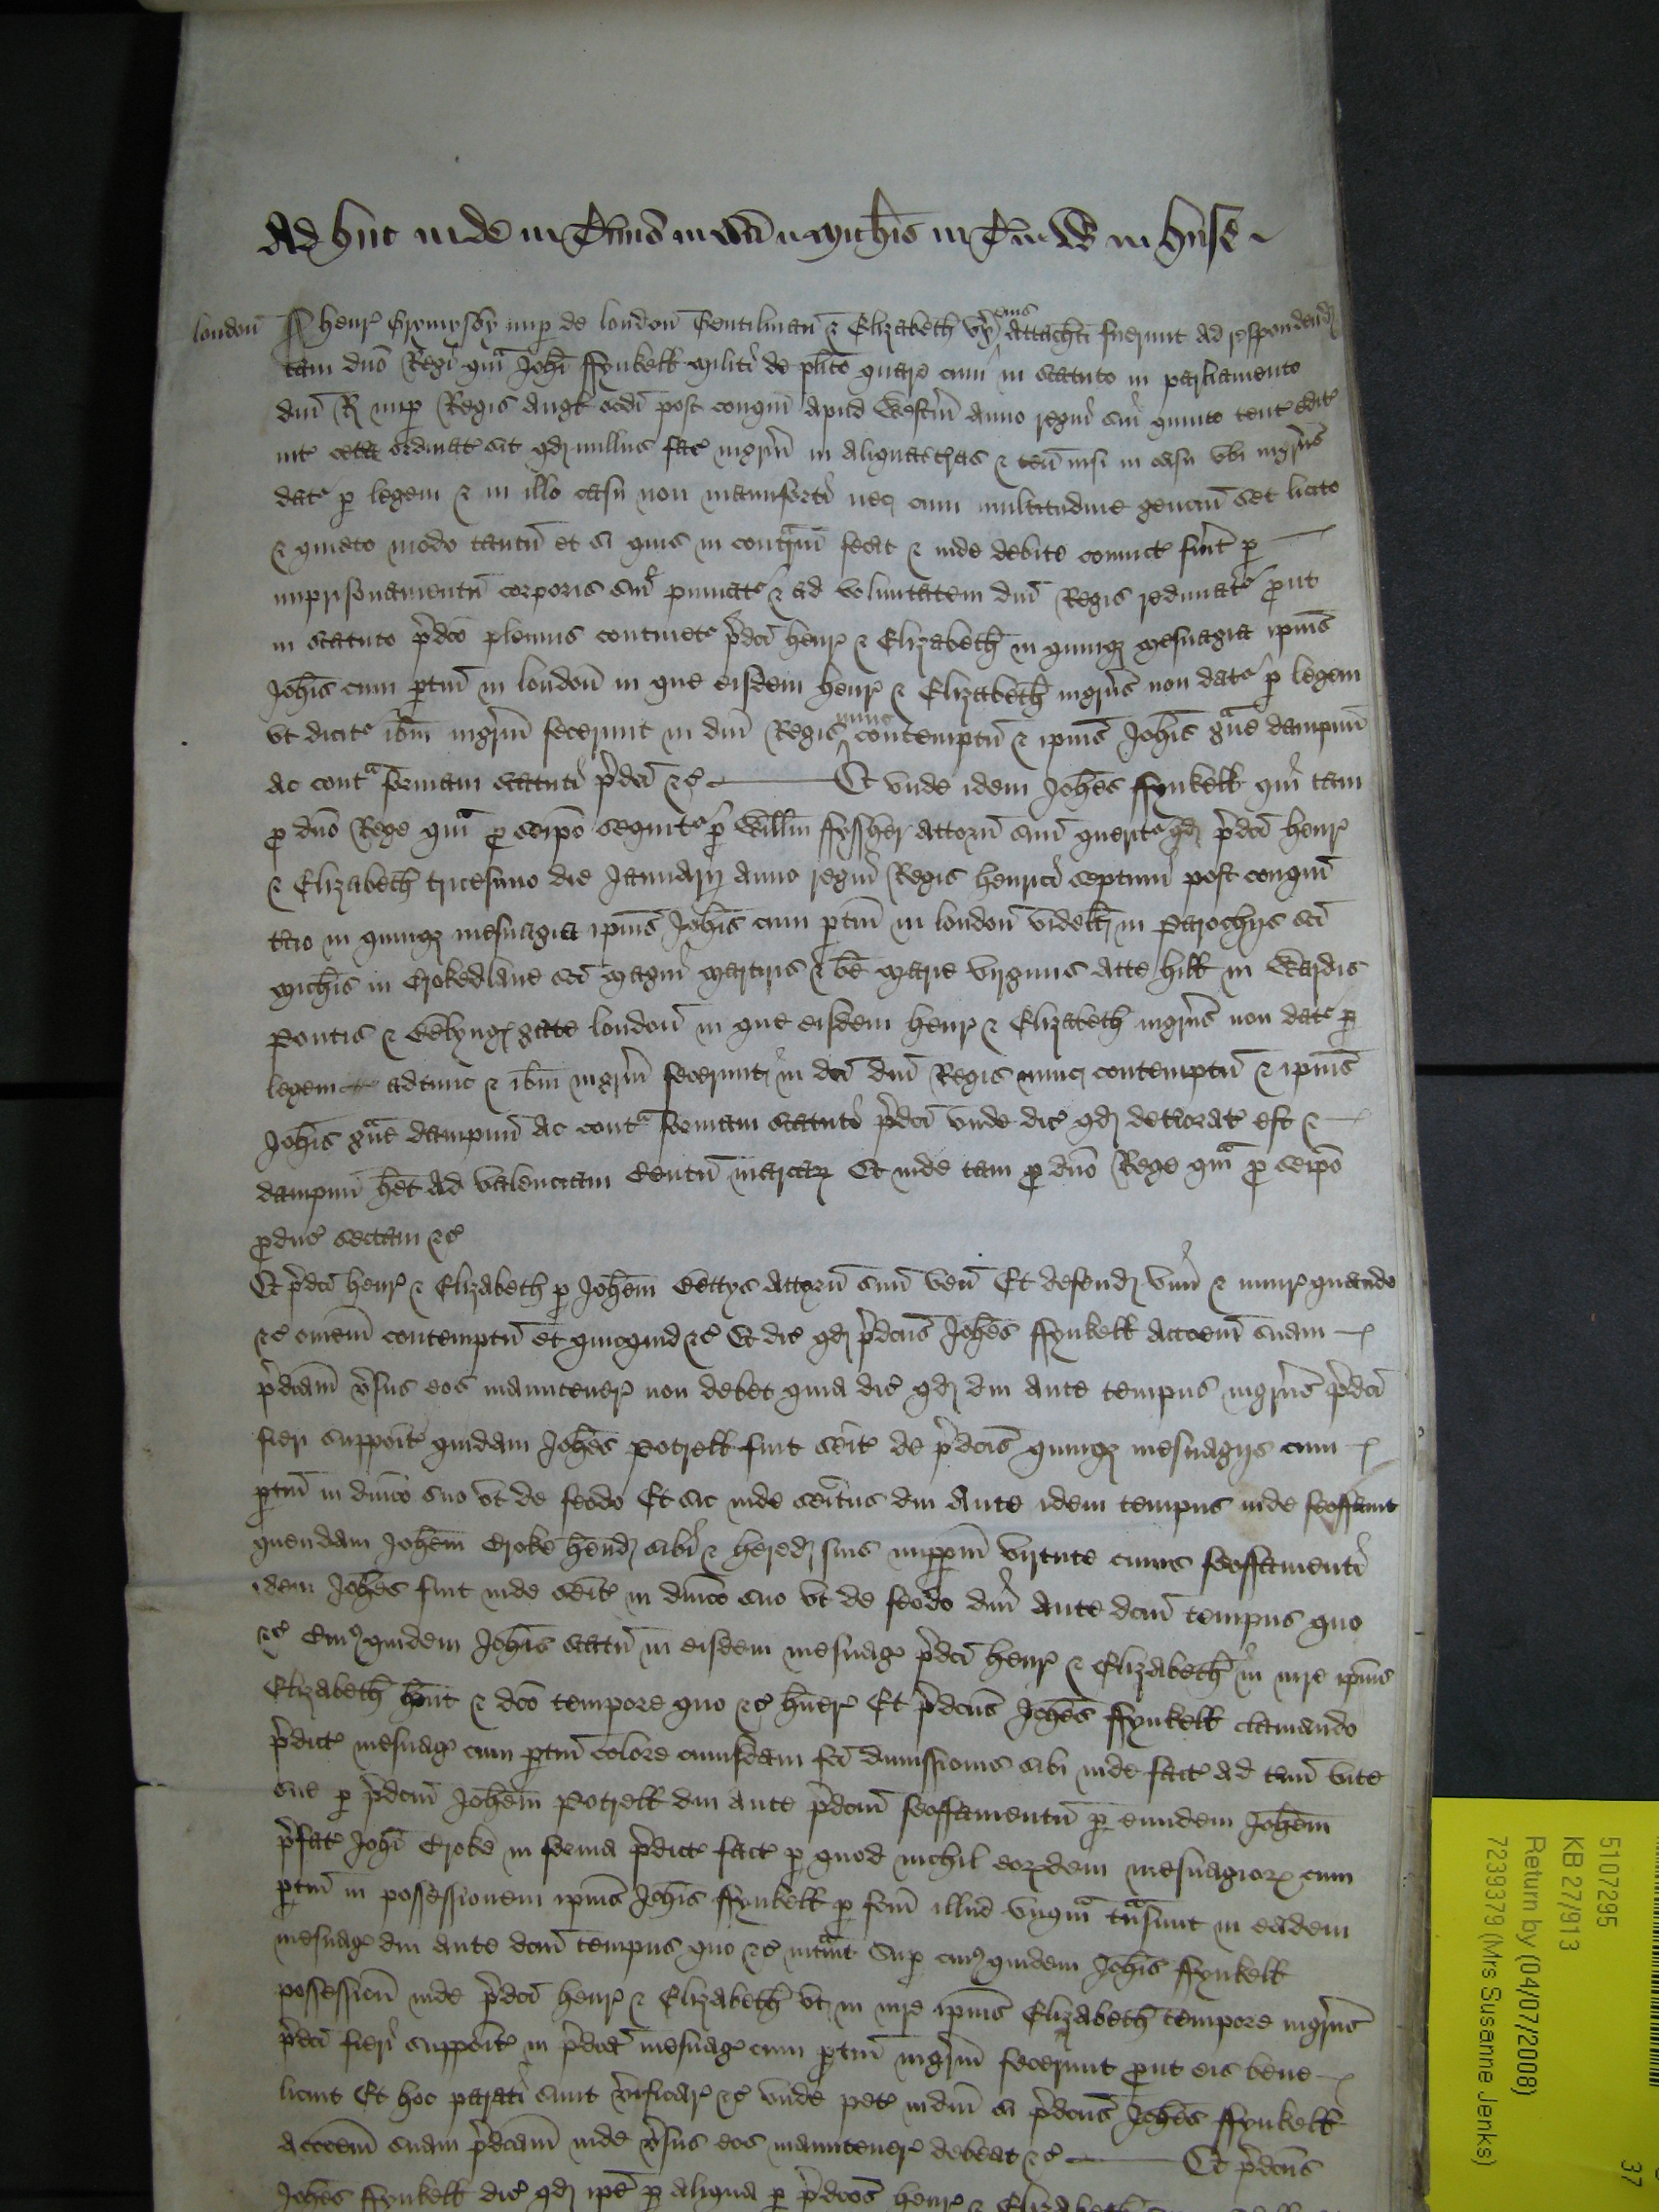 Adhuc inde in Termino sancti Michis in Turr W in huse
London ss henr Grymysby nup de london Gentilman & Elizabeth vx eius Attachti fuerunt ad respondend
tam dno Regi qm Johi ffynkell Militi de plito quare cum in statuto in parliamento
dni R nup Regis Angl scdi post conqm apud Westm anno regni sui quinto tent edit
int cetera ordinat sit qd nullus fac ingrm in aliqua terras & ten nisi in casu vbi ingrus
dat p legem & in illo casu non manuforti nec cum multitudine gencium set licito
& quieto modo tantum et si quis in contrm fecit & inde debite convict fuit p
imprisonamentum corporis sui puniat & ad voluntatem dni Regis redimat put
in statuto pdco plenius continet pdci henr & Elizabeth in quinq mesuagia ipius
Johis cum ptin in london in que eisdem henr & Elizabeth ingrus non dat p legem
vt dicit ibm ingrm fecerunt in dni Regis nunc contemptum & ipius Johis gue dampnu
ac contra formam statuti pdci &c Et vnde idem Johes ffynkell qui tam
p dno Rege qm p seipo sequit p Willm ffyssher attorn suu querit qd pdci henr
& Elizabeth tricesimo die Januarij anno regni Regis henrici septimi post conqm
tcio in quinq mesuagia ipius Johis cum ptin in london videlt in parochijs sci
Michis in Crokedlane sci Magni Martiris & be Marie virginis atte hill in Wardis
Pontis & Billyngesgate london in que eisdem henr & Elizabeth ingrus non dat p
legem adtunc & ibm ingrm fecerunt in dci dni Regis nunc contemptum & ipius
Johis gue dampnu ac contra formam statuti pdci vnde dic qd deteriorat est &
dampnu het ad valenciam Centum marcar Et inde tam p dno Rege qm p seipo
pduc sectam &c
Et pdci henr & Elizabeth p Johem Bettys attorn suu ven Et defend vim & iniur quando
&c omem contemptum et quicquid &c Et dic qd pdcus Johes ffynkell accoem suam
pdcam vsus eos manutener non debet quia dic qd diu ante tempus ingrus pdci
fieri supponit quidam Johes Potrell fuit seit de pdcis quinq mesuagijs cum
ptin in dnico suo vt de feodo Et sic inde seitus diu ante idem tempus inde feoffauit
quendam Johem Croke hend sibi & hered suis imppm virtute cuius feoffamenti
idem Johes fuit inde seit in dnico suo vt de feodo diu ante dcm tempus quo
&c Cuius quidem Johis statum in eisdem mesuag pdci henr & Elizabeth in iure ipius
Elizabeth hent & dco tempore quo &c huer Et pdcus Johes ffynkell clamando
pdict mesuag cum ptin colore cuiusdam fci dimissionis sibi inde fact ad tmi vite
sue p pdcm Johem Potrell diu ante pdcm feoffamentum p eundem Johem
pfat Johi Croke in forma pdict fact p quod nichil eordem mesuagior cum
ptin in possessionem ipius Johis ffynkell p fcm illud vnqm tnsiuit in eadem
mesuag diu ante dcm tempus quo &c intuit Sup cuius quidem Johis ffynkell
possessiom inde pdci henr & Elizabeth vt in iure ipius Elizabeth tempore ingrus
pdci fieri supponit in pdict mesuag cum ptin ingrm fecerunt put eis bene
licuit Et hoc parati sunt verificar &c vnde pet iudm si pdcus Johes ffynkell
accoem suam pdcam inde vsus eos manutener debeat &c Et pdcus
Johes ffynkell dic qd ipe p aliqua p pdcos henr & Elizabeth
5107295
KB 27/913
Return by (04/07/2008)
7239379 (Mrs Susanne Jenks)
37